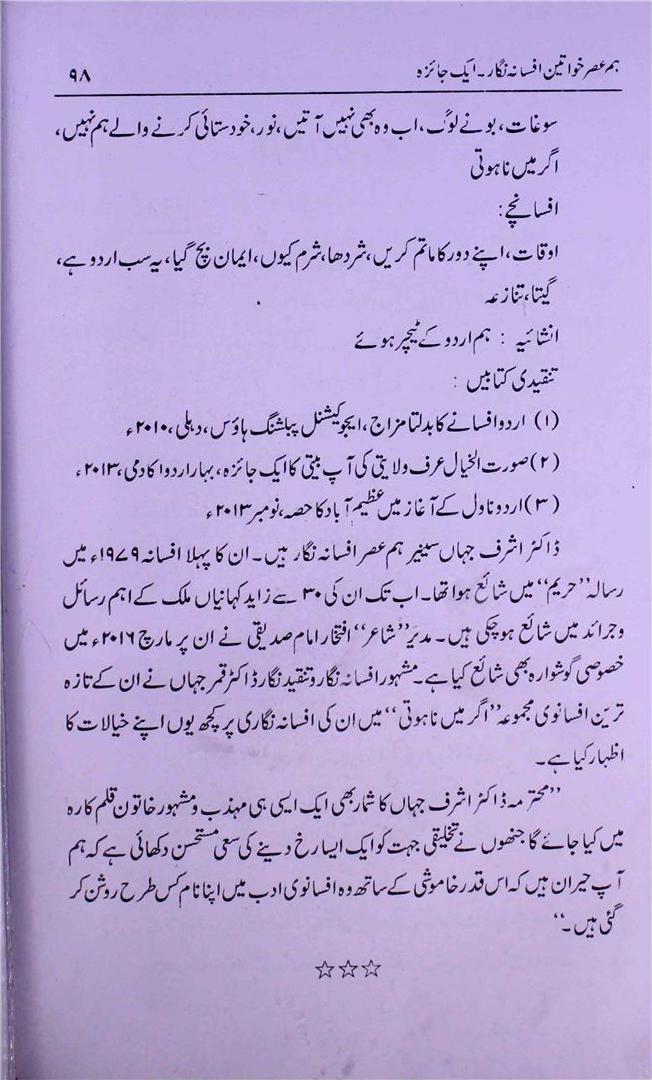 ہم عصر خواتین افسانہ نگار۔ ایک جائزہ
۹۸
سوغات، بونے لوگ، اب وہ بھی نہیں آتیں، نور، خودستائی کرنے والے ہم نہیں،
اگر میں نا ہوتی
افسانچے:
اوقات، اپنے دور کا ماتم کریں، شردھا، شرم کیوں، ایمان بچ گیا، یہ سب اردو ہے،
گیتا، تنازعہ
انشائیہ : ہم اردو کے ٹیچر ہوئے
تنقیدی کتابیں :
(۱) اردو افسانے کا بدلتا مزاج، ایجوکیشنل پبلشنگ ہاؤس، دہلی، ۲۰۱۰ء
(۲) صورت الخیال عرف ولایتی کی آپ بیتی کا ایک جائزہ، بہار اردو اکادمی، ۲۰۱۳ء
(۳) اردو ناول کے آغاز میں عظیم آباد کا حصہ، نومبر ۲۰۱۳ء
ڈاکٹر اشرف جہاں سینیر ہم عصر افسانہ نگار ہیں۔ ان کا پہلا افسانہ ۱۹۷۹ء میں
رسالہ ”حریم“ میں شائع ہوا تھا۔ اب تک ان کی ۳۰ سے زاید کہانیاں ملک کے اہم رسائل
وجرائد میں شائع ہوچکی ہیں۔ مدیر ”شاعر“ افتخار امام صدیقی نے ان پر مارچ ۲۰۱۶ء میں
خصوصی گوشوارہ بھی شائع کیا ہے۔ مشہور افسانہ نگار و تنقید نگار ڈاکٹر قمر جہاں نے ان کے تازہ
ترین افسانوی مجموعہ ”اگر میں نا ہوتی“ میں ان کی افسانہ نگاری پر کچھ یوں اپنے خیالات کا
اظہار کیا ہے۔
”محترمہ ڈاکٹر اشرف جہاں کا شمار بھی ایک ایسی ہی مہذب و مشہور خاتون قلم کارہ
میں کیا جائے گا جنھوں نے تخلیقی جہت کو ایک ایسا رخ دینے کی سعی مستحسن دکھائی ہے کہ ہم
آپ حیران ہیں کہ اس قدر خاموشی کے ساتھ وہ افسانوی ادب میں اپنا نام کس طرح روشن کر
گئی ہیں۔“
☆☆☆